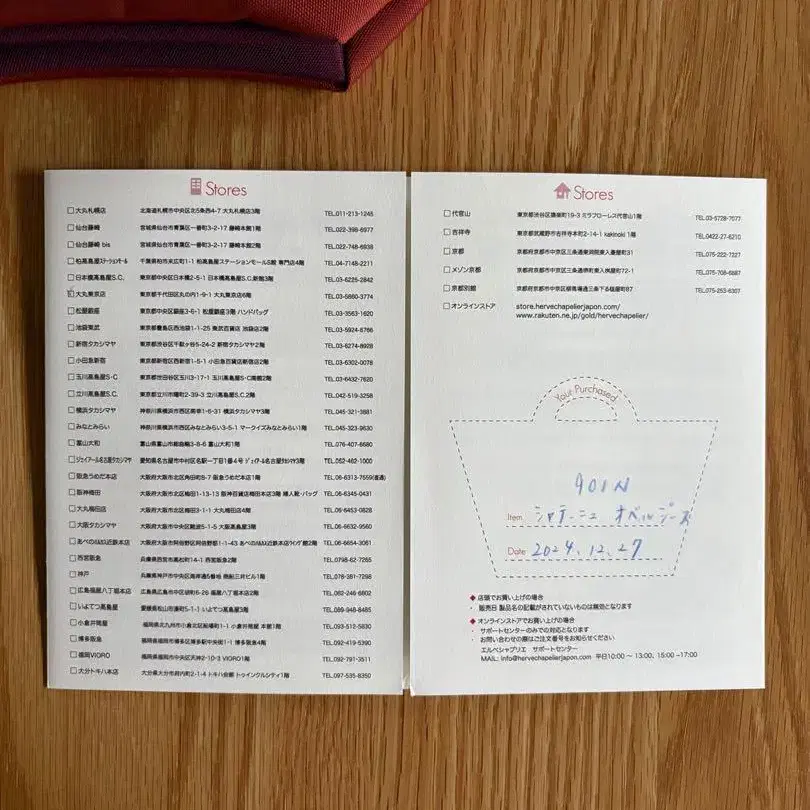 Stores
大丸札幌店 北海道札幌市中央区北5条西4-7 大丸札幌店3階 TEL.011-213-1245
仙台藤崎 宮城県仙台市青葉区一番町3-2-17 藤崎本館1階 TEL.022-398-6977
仙台藤崎 bis 宮城県仙台市青葉区一番町3-2-17 藤崎本館2階 TEL.022-748-6938
柏髙島屋ステーションモール 千葉県柏市末広町1-1 柏髙島屋ステーションモールS館 専門店4階 TEL.04-7148-2211
日本橋髙島屋S.C. 東京都中央区日本橋2-5-1 日本橋髙島屋S.C.新館3階 TEL.03-6225-2842
大丸東京店 東京都千代田区丸の内1-9-1 大丸東京店6階 TEL.03-5860-3774
松屋銀座 東京都中央区銀座3-6-1 松屋銀座3階 ハンドバッグ TEL.03-3563-1620
池袋東武 東京都豊島区西池袋1-1-25 東武百貨店 池袋店2階 TEL.03-5924-8766
新宿タカシマヤ 東京都渋谷区千駄ヶ谷5-24-2 新宿タカシマヤ2階 TEL.03-6274-8928
小田急新宿 東京都新宿区西新宿1-5-1 小田急百貨店新宿店2階 TEL.03-6302-0078
玉川髙島屋S・C 東京都世田谷区玉川3-17-1 玉川髙島屋S・C南館2階 TEL.03-6432-7620
立川髙島屋S.C. 東京都立川市曙町2-39-3 立川髙島屋S.C.2階 TEL.042-519-3258
横浜タカシマヤ 神奈川県横浜市西区南幸1-6-31 横浜タカシマヤ3階 TEL.045-321-3881
みなとみらい 神奈川県横浜市西区みなとみらい3-5-1 マークイズみなとみらい1階 TEL.045-323-9630
富山大和 富山県富山市総曲輪3-8-6 富山大和1階 TEL.076-407-8680
ジェイアール名古屋タカシマヤ 愛知県名古屋市中村区名駅一丁目1番4号 ジェイアール名古屋タカシマヤ3階 TEL.052-462-1000
阪急うめだ本店 大阪府大阪市北区角田町8-7 阪急うめだ本店1階 TEL.06-6313-7659(直通)
阪神梅田 大阪府大阪市北区梅田1-13-13 阪神百貨店梅田本店3階 婦人靴・バッグ TEL.06-6345-0431
大丸梅田店 大阪府大阪市北区梅田3-1-1 大丸梅田店4階 TEL.06-6453-0828
大阪タカシマヤ 大阪府大阪市中央区難波5-1-5 大阪髙島屋3階 TEL.06-6632-9560
あべのハルカス近鉄本店 大阪府大阪市阿倍野区阿倍野筋1-1-43 あべのハルカス近鉄本店ウイング館2階 TEL.06-6654-3061
西宮阪急 兵庫県西宮市高松町14-1 西宮阪急2階 TEL.0798-62-7265
神戸 兵庫県神戸市中央区海岸通5番地 商船三井ビル1階 TEL.078-381-7298
広島福屋八丁堀本店 広島県広島市中区胡町6-26 福屋八丁堀本店2階 TEL.082-246-6802
いよてつ髙島屋 愛媛県松山市湊町5-1-1 いよてつ髙島屋3階 TEL.089-948-8485
小倉井筒屋 福岡県北九州市小倉北区船場町1-1 小倉井筒屋 本館1階 TEL.093-512-5830
博多阪急 福岡県福岡市博多区博多駅中央街1-1 博多阪急4階 TEL.092-419-5390
福岡VIORO 福岡県福岡市中央区天神2-10-3 VIORO1階 TEL.092-791-3511
大分トキハ本店 大分県大分市府内町2-1-4 トキハ会館 トゥインクルシティ1階 TEL.097-535-8350
Stores
代官山 東京都渋谷区猿楽町19-3 ミラフローレス代官山1階 TEL.03-5728-7077
吉祥寺 東京都武蔵野市吉祥寺本町2-14-1 kakinoki 1階 TEL.0422-27-6210
京都 京都府京都市中京区三条通東洞院東入菱屋町31 TEL.075-222-7227
メゾン京都 京都府京都市中京区三条通堺町東入桝屋町72-1 TEL.075-708-6887
京都別館 京都府京都市中京区柳馬場通三条下る槌屋町87 TEL.075-253-6307
オンラインストア store.hervechapelierjapon.com/
www.rakuten.ne.jp/gold/hervechapelier/
Your Purchased
901N
Item シャテーニュ オベルジーヌ
Date 2024.12.27
◆ 店頭でお買い上げの場合
・ 販売日 製品名の記載がされていないものは無効となります
◆ オンラインストアでお買い上げの場合
・ サポートセンターのみでの対応となります
・ お問い合わせの際はご注文番号をお知らせください
エルベシャプリエ サポートセンター
MAIL: info@hervechapelierjapon.com 平日10:00 ~ 13:00、15:00 ~17:00